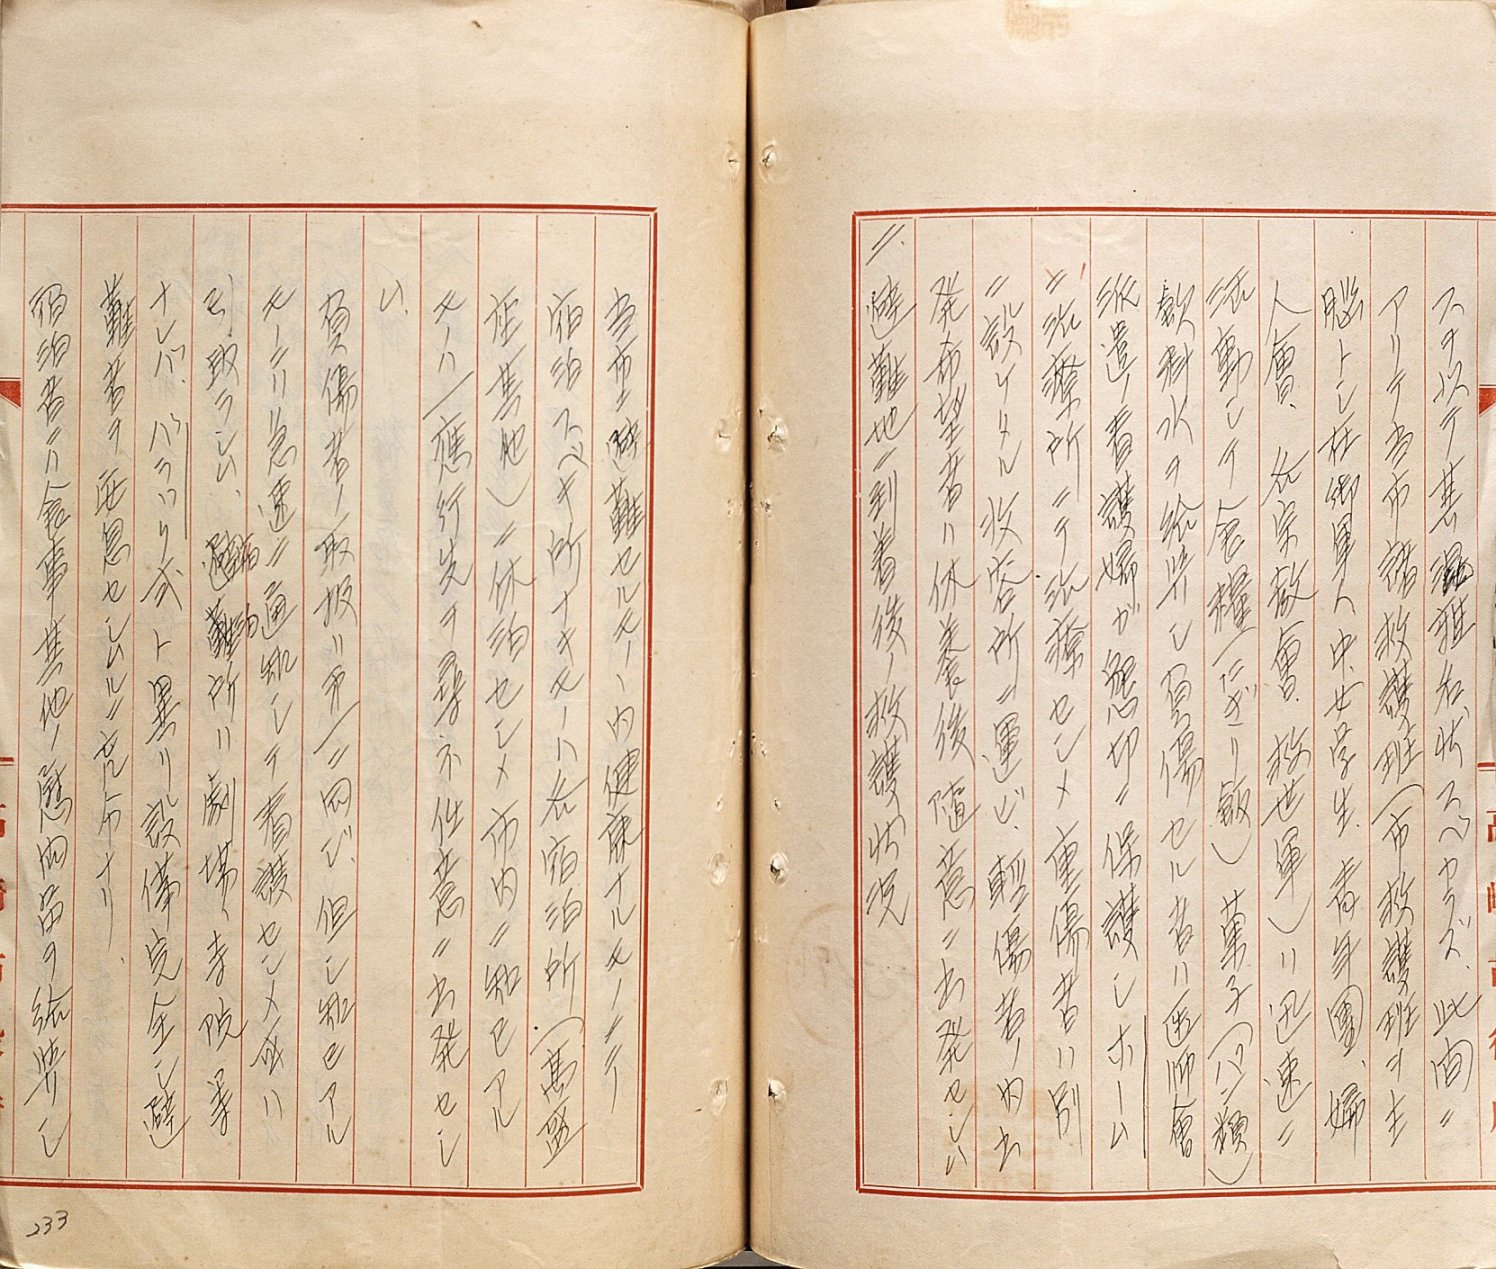 スヲ以テ其混雑名状スベカラズ、此間ニ
アリテ当市諸救護班(市救護班ヲ主
脳トシ在郷軍人中、女学生、青年團、婦
人會、各宗教會、救世軍)ハ迅速ニ
活動シテ食糧(ニギリ飯)菓子(パン類)
飲料水ヲ給与シ負傷セル者ハ医師會
派遣ノ看護婦ガ懇切ニ保護シホーム
ニ治療所ニテ治療セシメ重傷者ハ別
ニ設ケタル収容所ニ運ビ、軽傷者ノ内出
発希望者ハ休養後随意ニ出発セシム
二、避難地ニ到着後ノ救護状況
当市ニ避難セルモノヽ内健康ナルモノニテ
宿泊スベキ所ナキモノハ各宿泊所(高盛
座其他)ニ休泊セシメ市内ニ知己アル
モノハ一應行先ヲ尋ネ任意ニ出発セシ
ム、
負傷者ノ取扱ハ第一ニ同ジ、但シ知己アル
モノニハ急速ニ通知シテ看護セシメ或ハ
引取ラシム、避難所ハ劇場、寺院等
宿泊
ナレバ、バラック式ト異リ設備完全シ避
難者ヲ安息セシムルニ充分ナリ、
宿泊者ニハ食事其他ノ慰問品ヲ給与シ
233